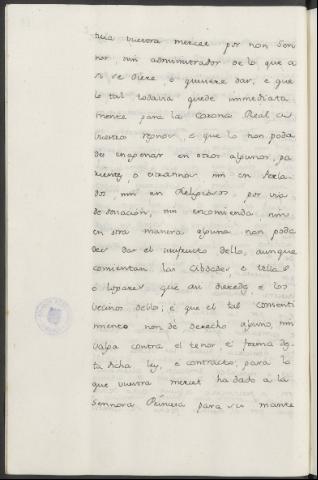 vuestra merced por non Sen
nor nin administrador de lo que a
si se diere, o quisiere dar, e que
lo tal todavia quede immediata
mente para la Corona Real, a
vuestro honor, e que lo non poda
des enagenar en otros algunos, pa
rientes, o estrannos, nin en Perla
dos, nin en Religiosos, por via
de donacion, nin encomienda, nin
en otra manera alguna non poda
des dar el usufructo dello, aunque
consientan las Cibdades, e Villas
o lugares que asi dieredes, e los
vecinos dello; e que el tal consenti
miento non dé derecho alguno, nin
valga contra el tenor é forma des
ta dicha ley, e contracto; para lo
que vuestra merced ha dado a la
Sennora Princesa para su mante